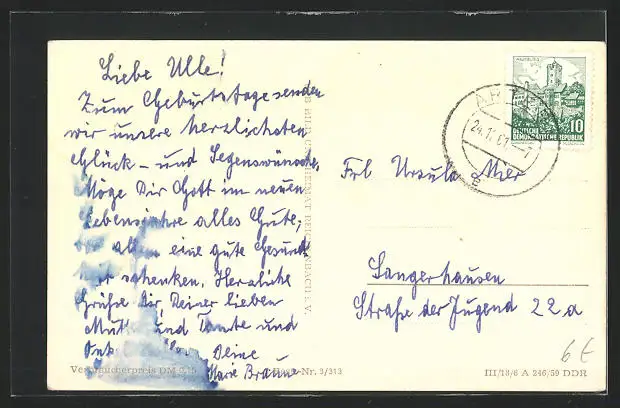 Liebe Ulle!
Zum Geburtstage senden
wir unsere herzlichsten
Glück- und Segenswünsche.
Möge Dir Gott im neuen
Lebensjahre alles Gute,
vor allem eine gute Gesund-
schenken. Herzliche
Grüße Dir, Deiner lieben
und Tante und
Deine
Marie Braune
Frl Ursula
Sangerhausen
Straße der Jugend 22a
6 €
DEUTSCHE
DEMOKRATISCHE REPUBLIK
10
ARTERN
24.1.61
Verbraucherpreis DM
Nr. 3/313
III/18/6 A 246/59 DDR